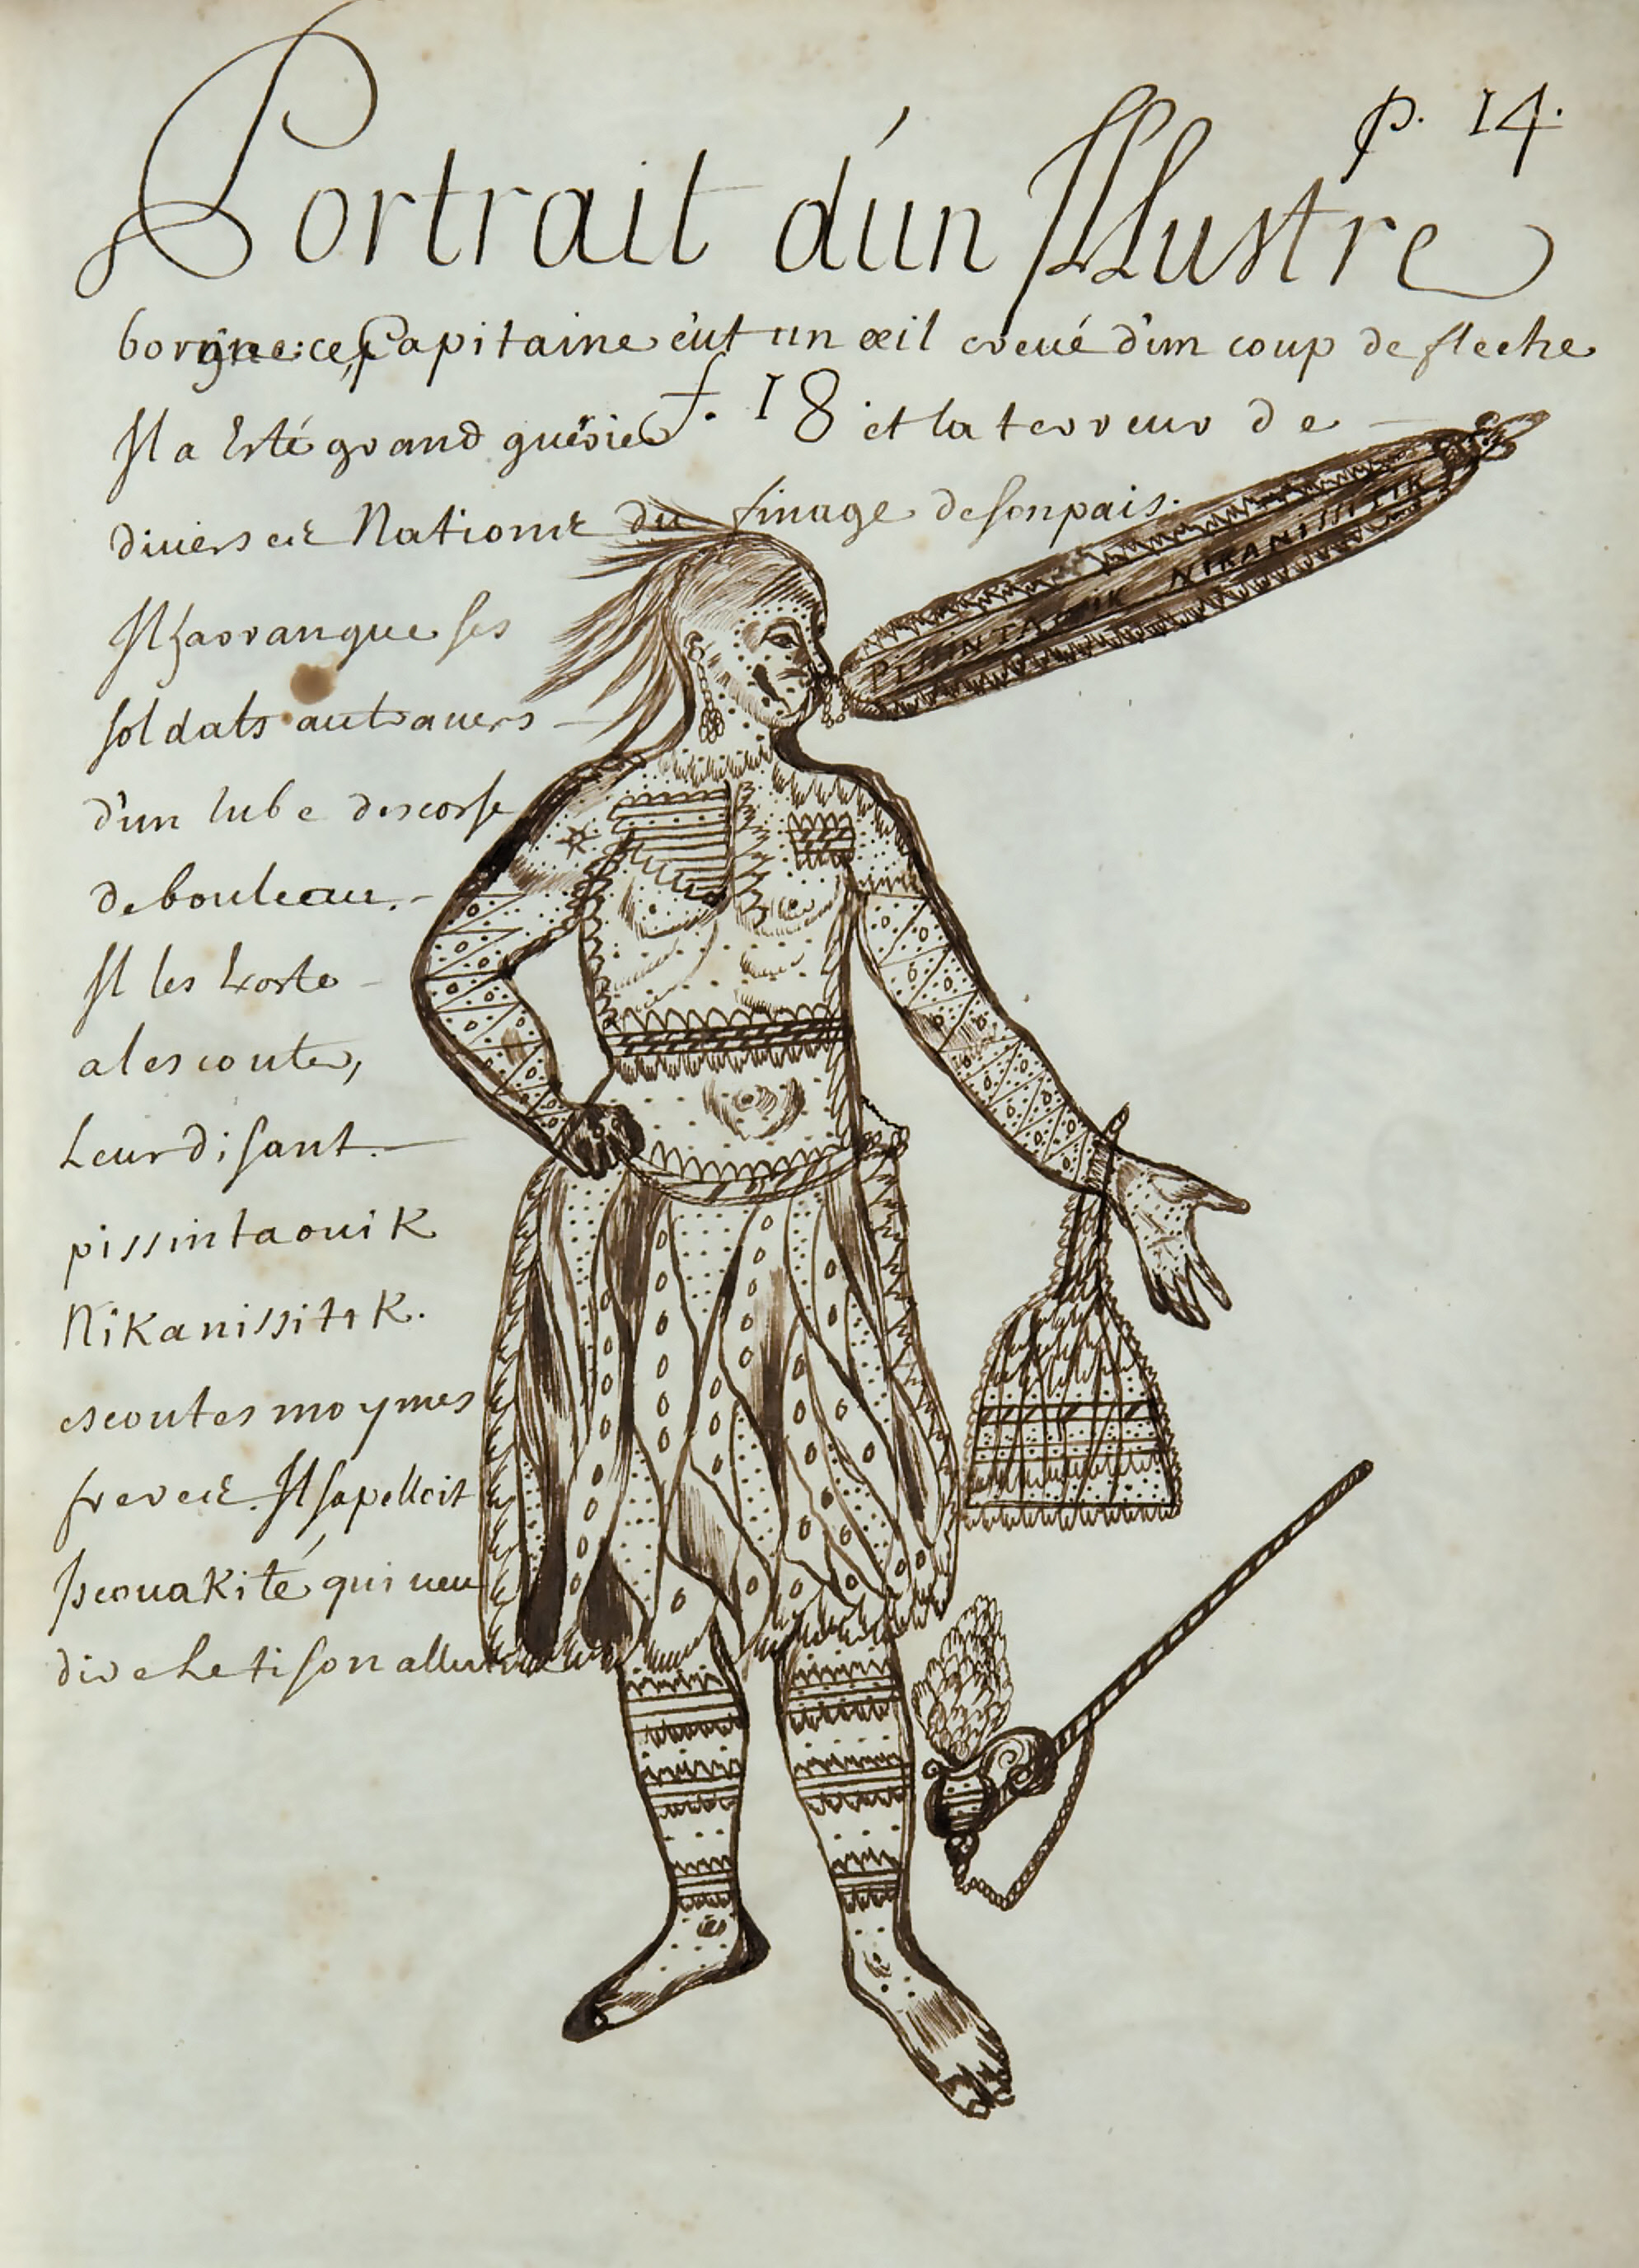 p. 14.
Portrait d'un Illustre
borgne: ce Capitaine eut un œil creué d'un coup de fleche
Il a Esté grand guérier et la terreur de
f. 18
diverses Nations du finage de son pais.
Il harangue ses
soldats au trauers
d'un tube descorse
de bouleau.
Il les Exorte
a lescouter,
Leur disant.
pissintaouik
Nikanissitik.
escoutes moy mes
freres. Il sapelloit
Iscouakité, qui ueu
dire Le tison allumé
PISSINTAOIK NIKANISSITIK